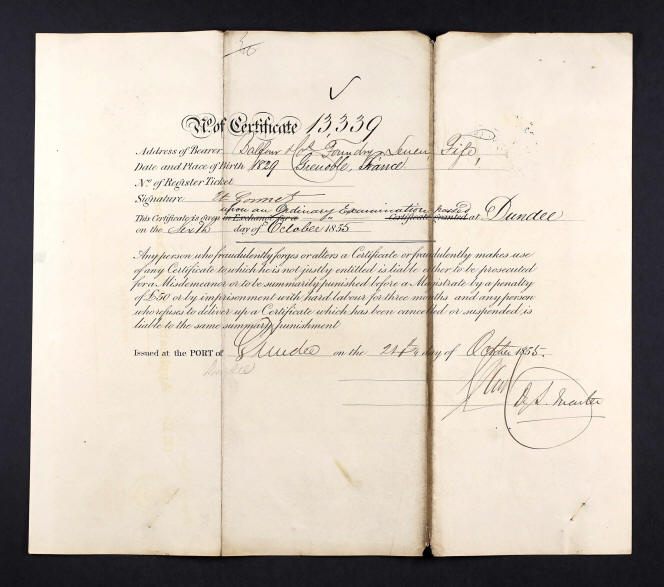 No. of Certificate 13,339
Address of Bearer Balfour & Co's Foundry, Leven, Fife,
Date and Place of Birth 1829 Grenoble, France
No. of Register Ticket
Signature
upon an Ordinary Examination passed
This Certificate is given in Exchange for a Certificate Granted at Dundee
on the Sixth day of October 1855
Any person who fraudulently forges or alters a Certificate or fraudulently makes use
of any Certificate to which he is not justly entitled is liable either to be prosecuted
for a Misdemeanor or to be summarily punished before a Magistrate by a penalty
of £50 or by imprisonment with hard labour for three months and any person
who refuses to deliver up a Certificate which has been cancelled or suspended is
liable to the same summary punishment
Issued at the PORT of Dundee on the day of October 1855.
Dundee